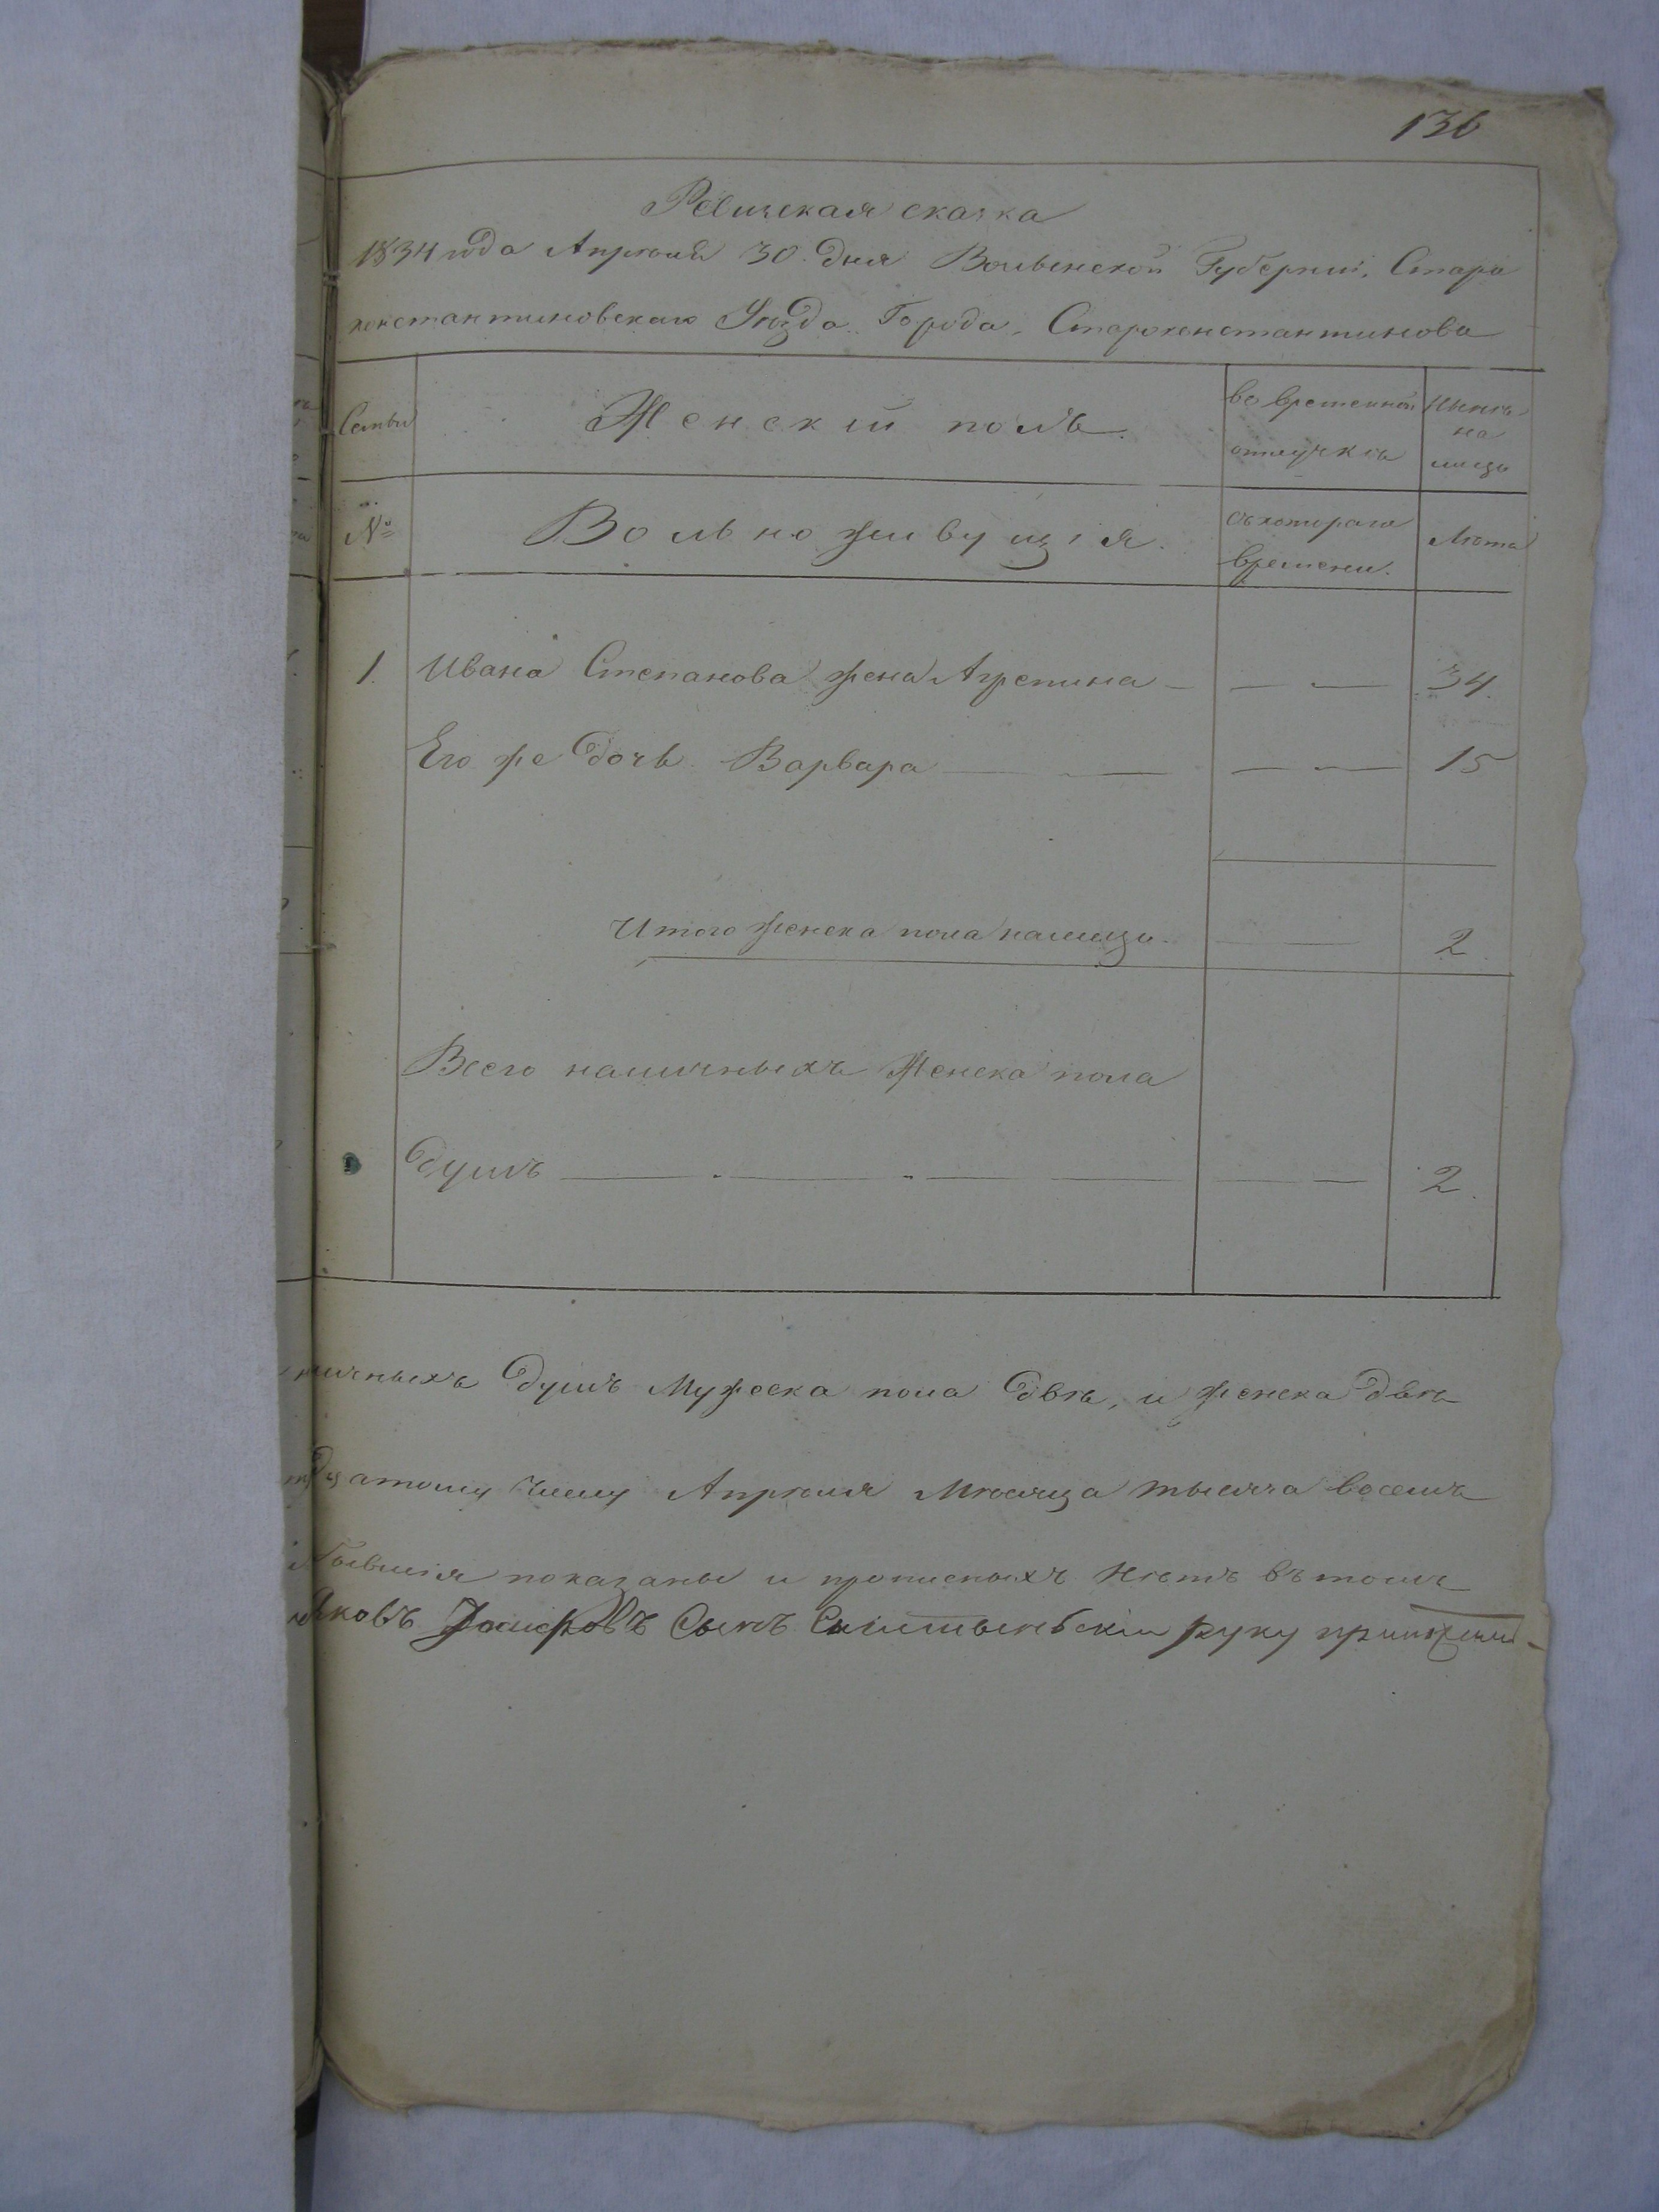 136
Ревижская сказка
1834 года Апреля 30. дня Волынской Губернии, Старо
константиновскаго Уѣзда. Города. Староконстантинова
Семьи
Женскій полъ.
во временной
отлучкѣ
Нынѣ
на
лицо
№
Вольно живущія.
съ котораго
времени.
Лѣта
1. Ивана Степанова жена Агрепина — — — 34.
Его же дочь Варвара — — — — 15
Итого женска пола налицо. — — 2.
Всего наличныхъ женска пола
Душъ — . — . — — — — 2.
личныхъ душъ Мужеска пола двѣ, и женска двѣ
атому числу Апрѣля Мѣсяца тысяча восемъ
бывшія показаны и прописныхъ нѣтъ въ томъ
Яковъ сынъ руку приложилъ